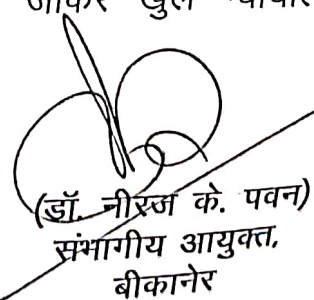 जाकर खुले
(डॉ. नीरज के. पवन)
संभागीय आयुक्त,
बीकानेर